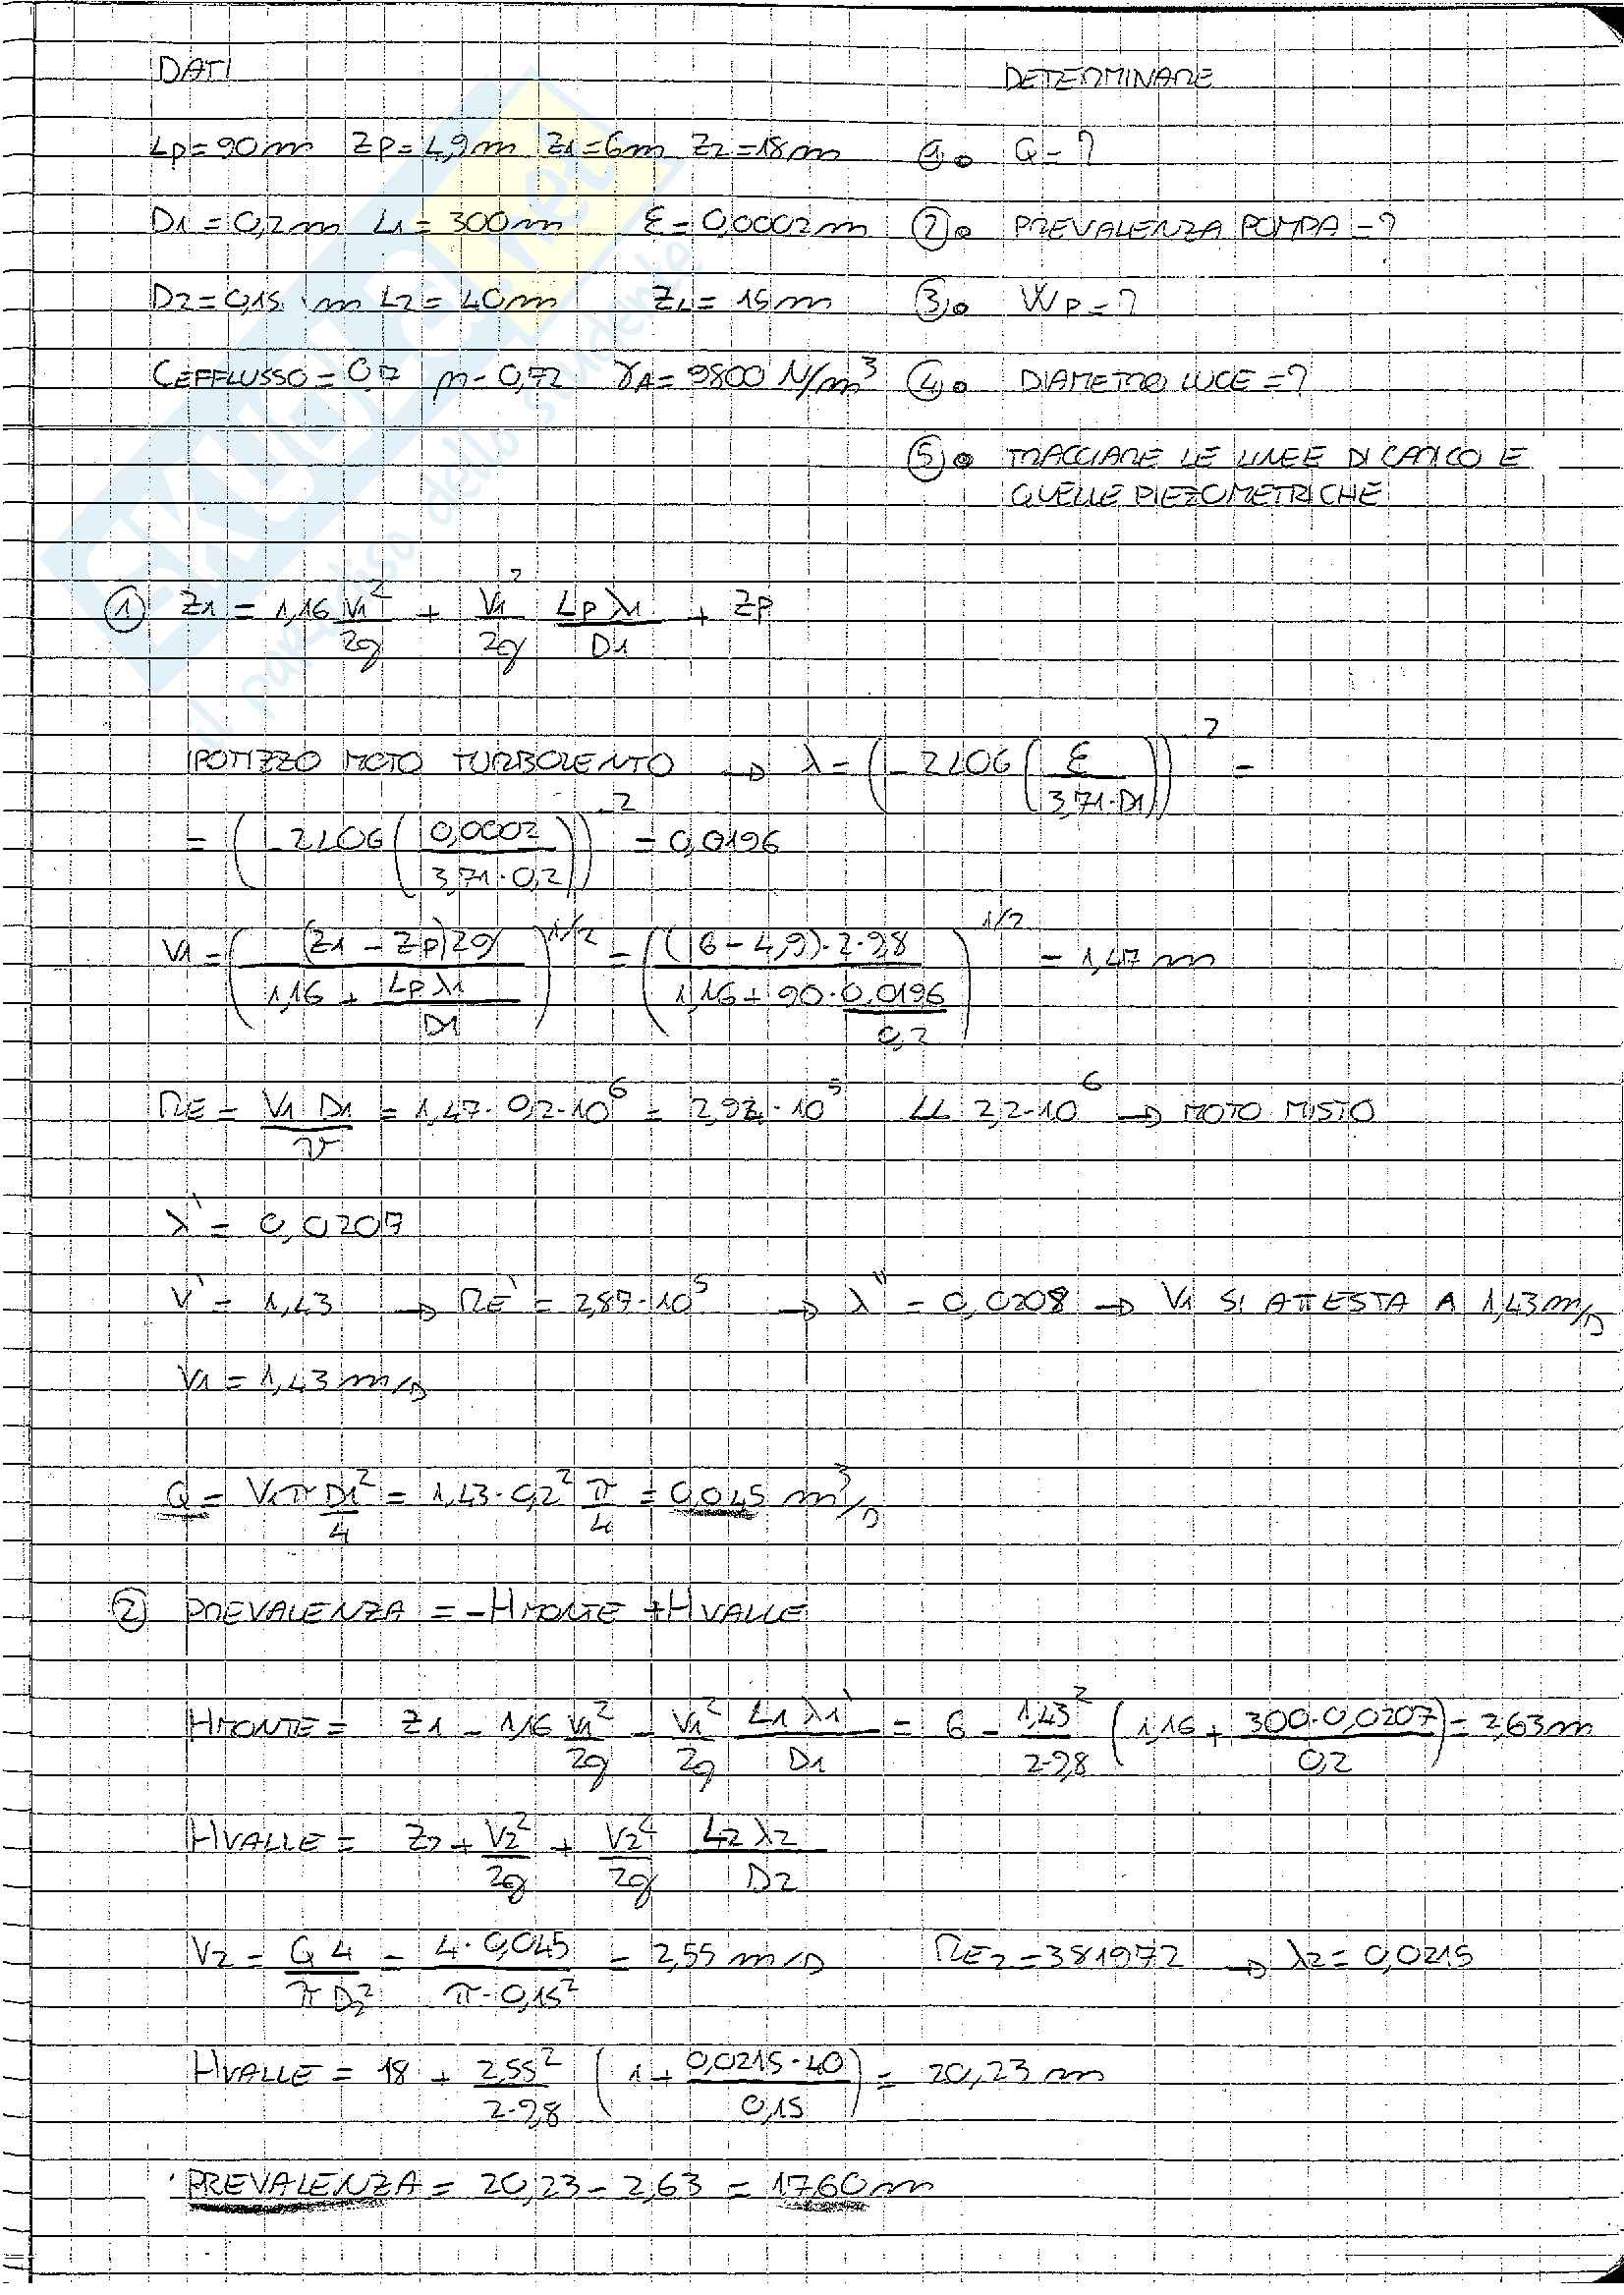 DATI DETERMINARE
Lp=90m Zp=4,9m Z1=6m Z2=18m 1. Q=?
D1=0,2m L1=300m ε=0,0002m 2. PREVALENZA POMPA=?
D2=0,15 m L2=40m ZL=15m 3. Wp=?
CEFFLUSSO=0,7 η=0,72 γA=9800 N/m³ 4. DIAMETRO LUCE=?
5. TRACCIARE LE LINEE DI CARICO E
QUELLE PIEZOMETRICHE
1 Z1 = 1,16 V1²/2g + V1²/2g Lpλ1/D1 + Zp
IPOTIZZO MOTO TURBOLENTO → λ = (-2LOG(ε/3,71·D1))⁻² =
= (-2LOG(0,0002/3,71·0,2))⁻² = 0,0196
V1 = ((Z1-Zp)2g/(1,16 + Lpλ1/D1))^1/2 = ((6-4,9)·2·9,8/(1,16+90·0,0196/0,2))^1/2 = 1,47m
RE = V1 D1/ν = 1,47·0,2·10⁶ = 2,94·10⁵ LL 2,2·10⁶ → MOTO MISTO
λ' = 0,0207
V' = 1,43 → RE' = 2,87·10⁵ → λ'' = 0,0208 → V1 SI ATTESTA A 1,43m/s
V1 = 1,43m/s
Q = V1π D1²/4 = 1,43·0,2² π/4 = 0,045 m³/s
2 PREVALENZA = -HMONTE +HVALLE
HMONTE = Z1 - 1,16 V1²/2g - V1²/2g L1λ1'/D1 = 6 - 1,43²/2·9,8 (1,16 + 300·0,0207/0,2) = 2,63m
HVALLE = Z2 + V2²/2g + V2²/2g L2λ2/D2
V2 = Q4/πD2² = 4·0,045/π·0,15² = 2,55 m/s RE2=381972 → λ2=0,0215
HVALLE = 18 + 2,55²/2·9,8 (1+ 0,0215·40/0,15) = 20,23m
PREVALENZA = 20,23-2,63 = 17,60m
SKUOLA.net
il paradiso dello studente